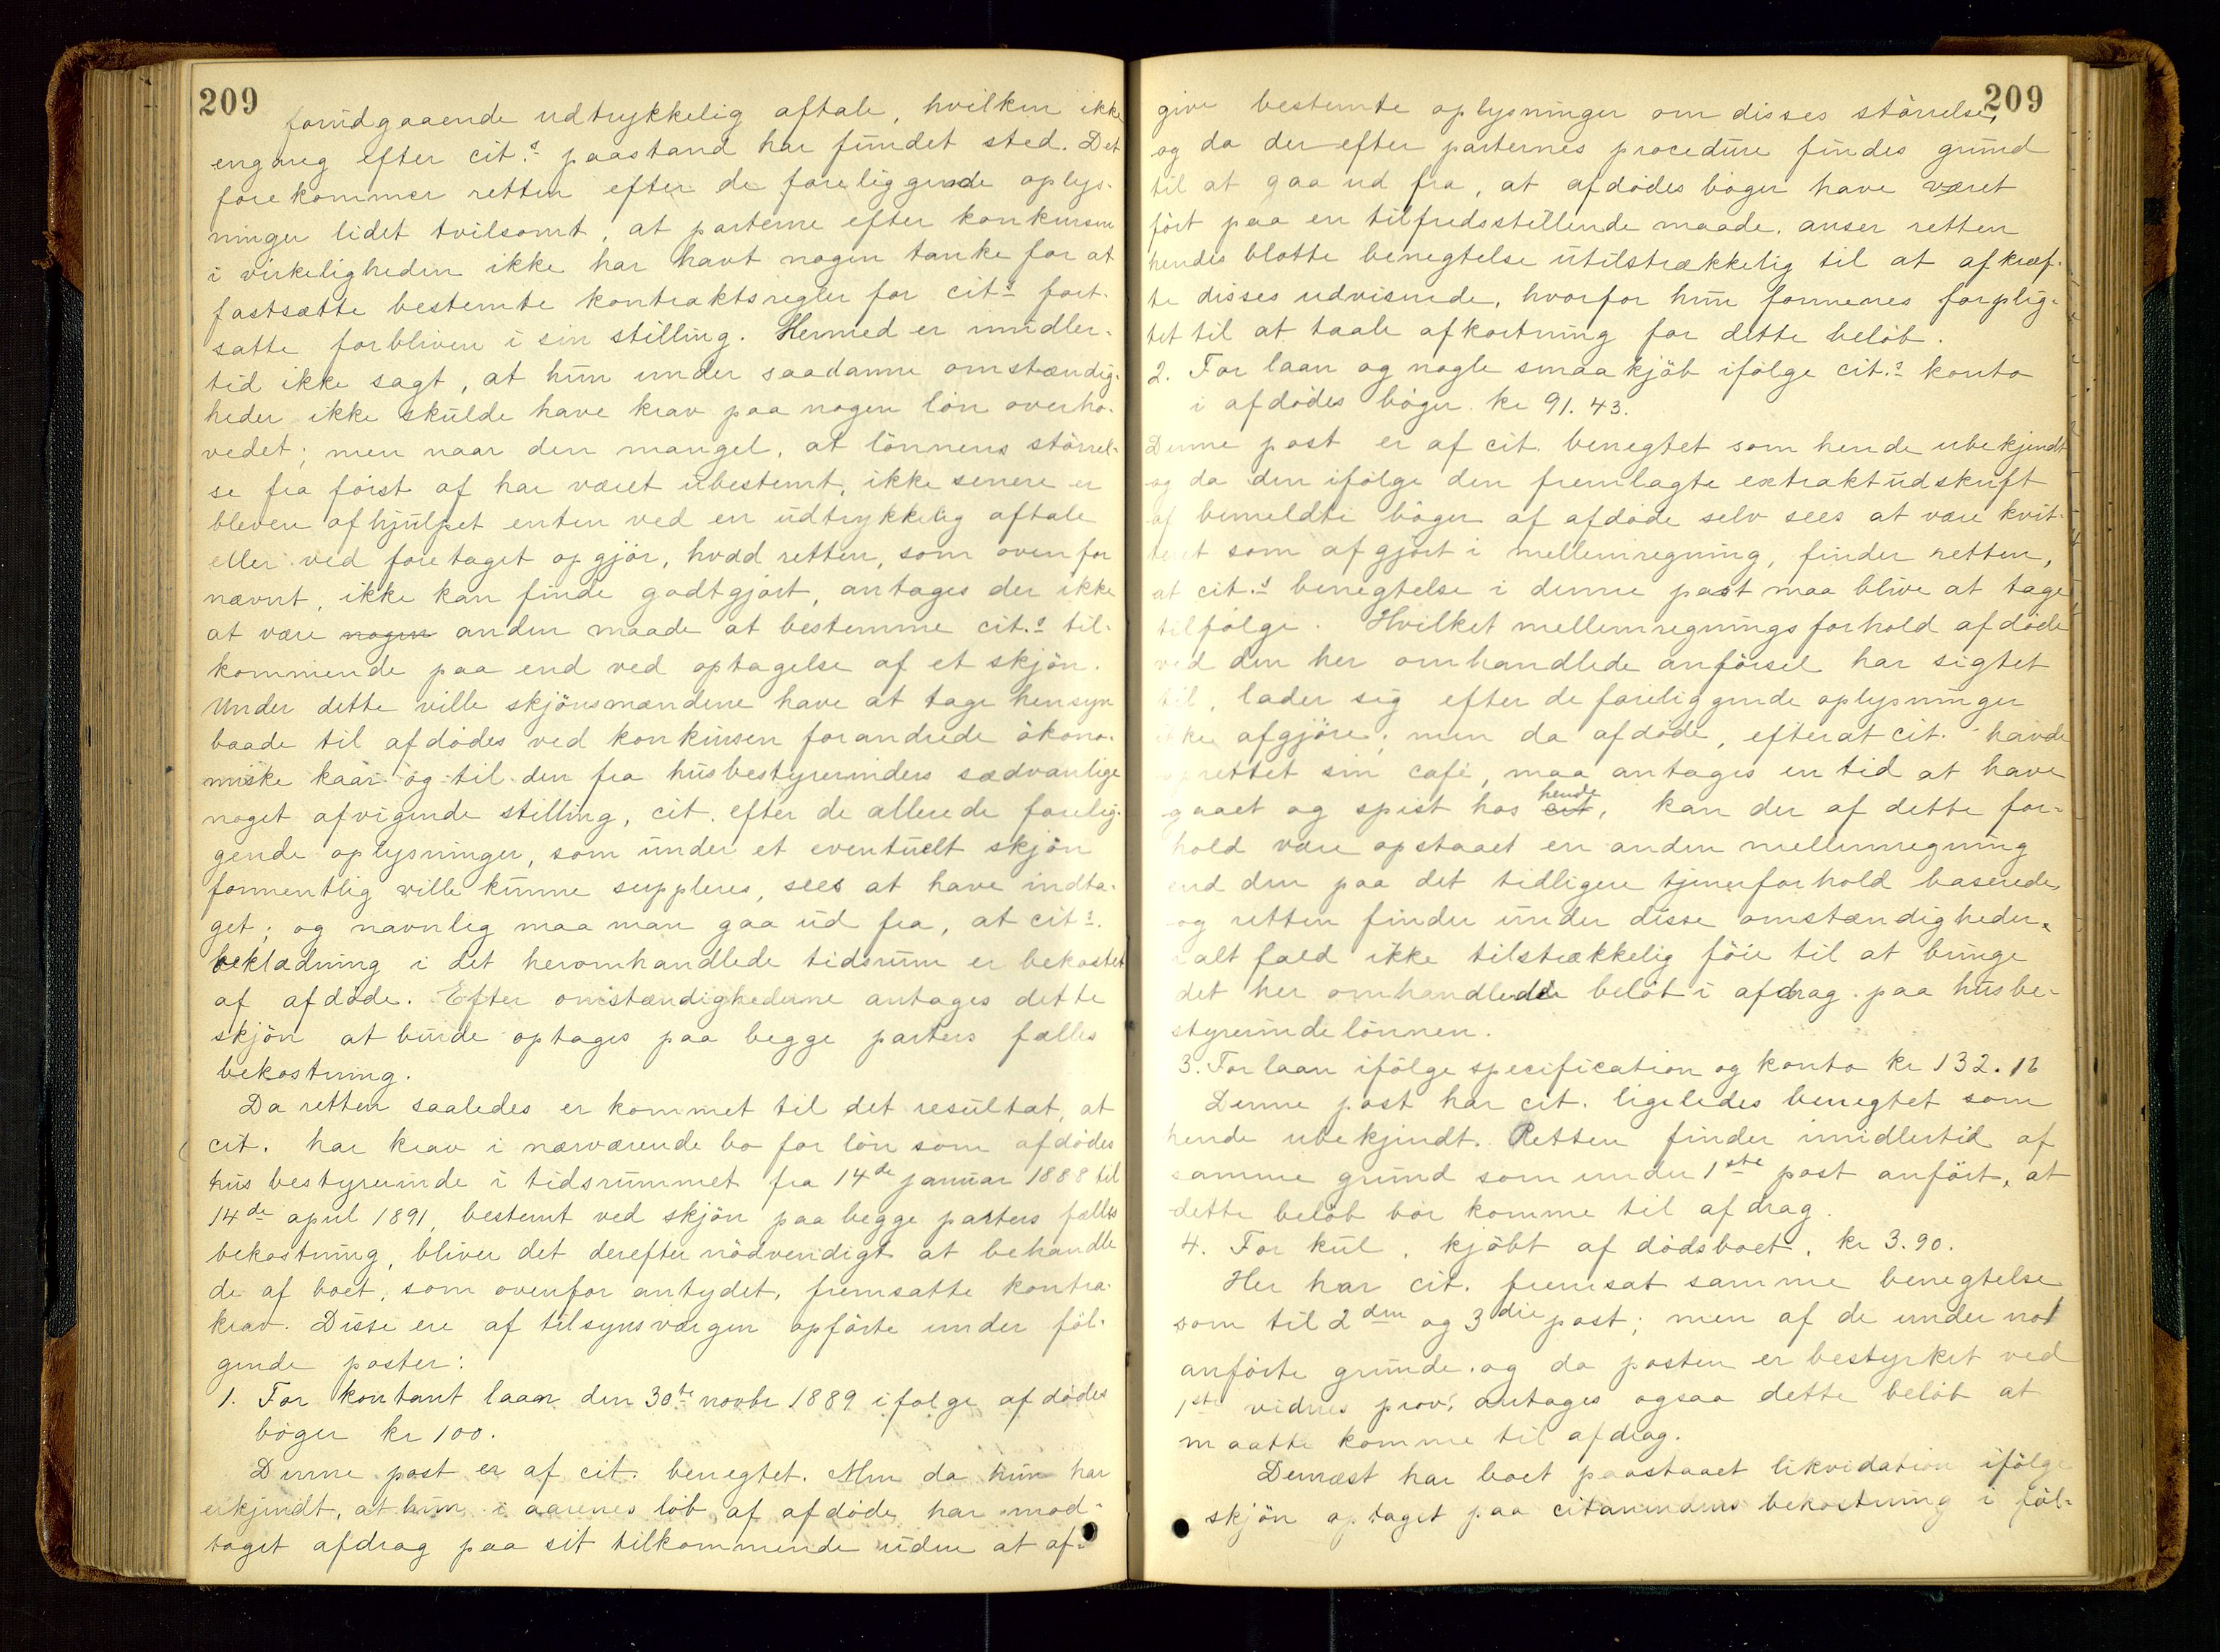 209
forudgaaende udtrykkelig aftale, hvilken ikke
engang efter cit.s paastand har fundet sted. Det
forekommer retten efter de foreliggende oplys-
ninger lidet tvilsomt, at parterne efter konkursen
i virkeligheden ikke har havt nogen tanke for at
fastsætte bestemte kontraktsregler for cit.s fort-
satte forbliven i sin stilling. Hermed er imidler-
tid ikke sagt, at hun under saadanne omstændig-
heder ikke skulde have krav paa nogen lön overho-
vedet; men naar den mangel, at lönnens störrel-
se fra först af har været ubestemt, ikke senere er
bleven afhjulpet enten ved en udtrykkelig aftale
eller ved foretaget opgjör, hvad retten, som ovenfor
nævnt, ikke kan finde godtgjort, antages der ikke
at være nogen anden maade at bestemme cit.s til-
kommende paa end ved optagelse af et skjön.
Under dette ville skjönsmændene have at tage hensyn
baade til afdödes ved konkursen forandrede ökono-
miske kaar og til den fra husbestyrerinders sædvanlige
noget afvigende stilling, cit. efter de allerede forelig-
gende oplysninger, som under et eventuelt skjön
formentlig ville kunne suppleres, sees at have indta-
get; og navnlig maa man gaa ud fra, at cit.s
beklædning i det heromhandlede tidsrum er bekostet
af afdöde. Efter omstændighederne antages dette
skjön at burde optages paa begge parters fælles
bekostning.
Da retten saaledes er kommet til det resultat, at
cit. har krav i nærværende bo for lön som afdödes
husbestyrerinde i tidsrummet fra 14de januar 1888 til
14de april 1891, bestemt ved skjön paa begge parters fælles
bekostning, bliver det derefter nödvendigt at behandle
de af boet, som ovenfor antydet, fremsatte kontra-
krav. Disse ere af tilsynsværgen opförte under föl-
gende poster:
1. For kontant laan den 30te novbr 1889 ifölge afdödes
böger kr 100.
Denne post er af cit. benegtet. Men da hun har
erkjendt, at hun i aarenes löb af afdöde har mod-
taget afdrag paa sit tilkommende uden at af-
209
give bestemte oplysninger om disses störrelse,
og da der efter parternes procedure findes grund
til at gaa ud fra, at afdödes böger have været
fört paa en tilfredsstillende maade, anser retten
hendes blotte benegtelse utilstrækkelig til at afkræf-
te disses udvisende, hvorfor hun formenes forplig-
tet til at taale afkortning for dette belöb.
2. For laan og nogle smaakjöb ifölge cit.s konto
i afdödes böger kr 91.43.
Denne post er af cit. benegtet som hende ubekjendt
og da den ifölge den fremlagte extraktudskrift
af bemeldte böger af afdöde selv sees at være kvit-
teret som afgjort i mellemregning, finder retten,
at cit.s benegtelse i denne post maa blive at tage
tilfölge. Hvilket mellemregningsforhold afdöde
ved den her omhandlede anförsel har sigtet
til, lader sig efter de foreliggende oplysninger
ikke afgjöre; men da afdöde, efterat cit. havde
oprettet sin café, maa antages en tid at have
gaaet og spist hos cit. hende, kan der af dette for-
hold være opstaaet en anden mellemregning
end den paa det tidligere tjenerforhold baserede,
og retten finder under disse omstændigheder,
ialtfald ikke tilstrækkelig föie til at bringe
det her omhandlede belöb i afdrag paa husbe-
styrerindelönnen.
3. For laan ifölge specification og konto kr 132.16
Denne post har cit. ligeledes benegtet som
hende ubekjendt. Retten finder imidlertid af
samme grund som under 1ste post anfört, at
dette belöb bör komme til afdrag.
4. For kul, kjöbt af dödsboet, kr 3.90.
Her har cit. fremsat samme benegtelse
som til 2den og 3die post; men af de under no 1
anförte grunde og da posten er bestyrket ved
1ste vidnes prov, antages ogsaa dette belöb at
maatte komme til afdrag.
Dernæst har boet paastaaet likvidation ifölge
skjön optaget paa citantindens bekostning i föl-